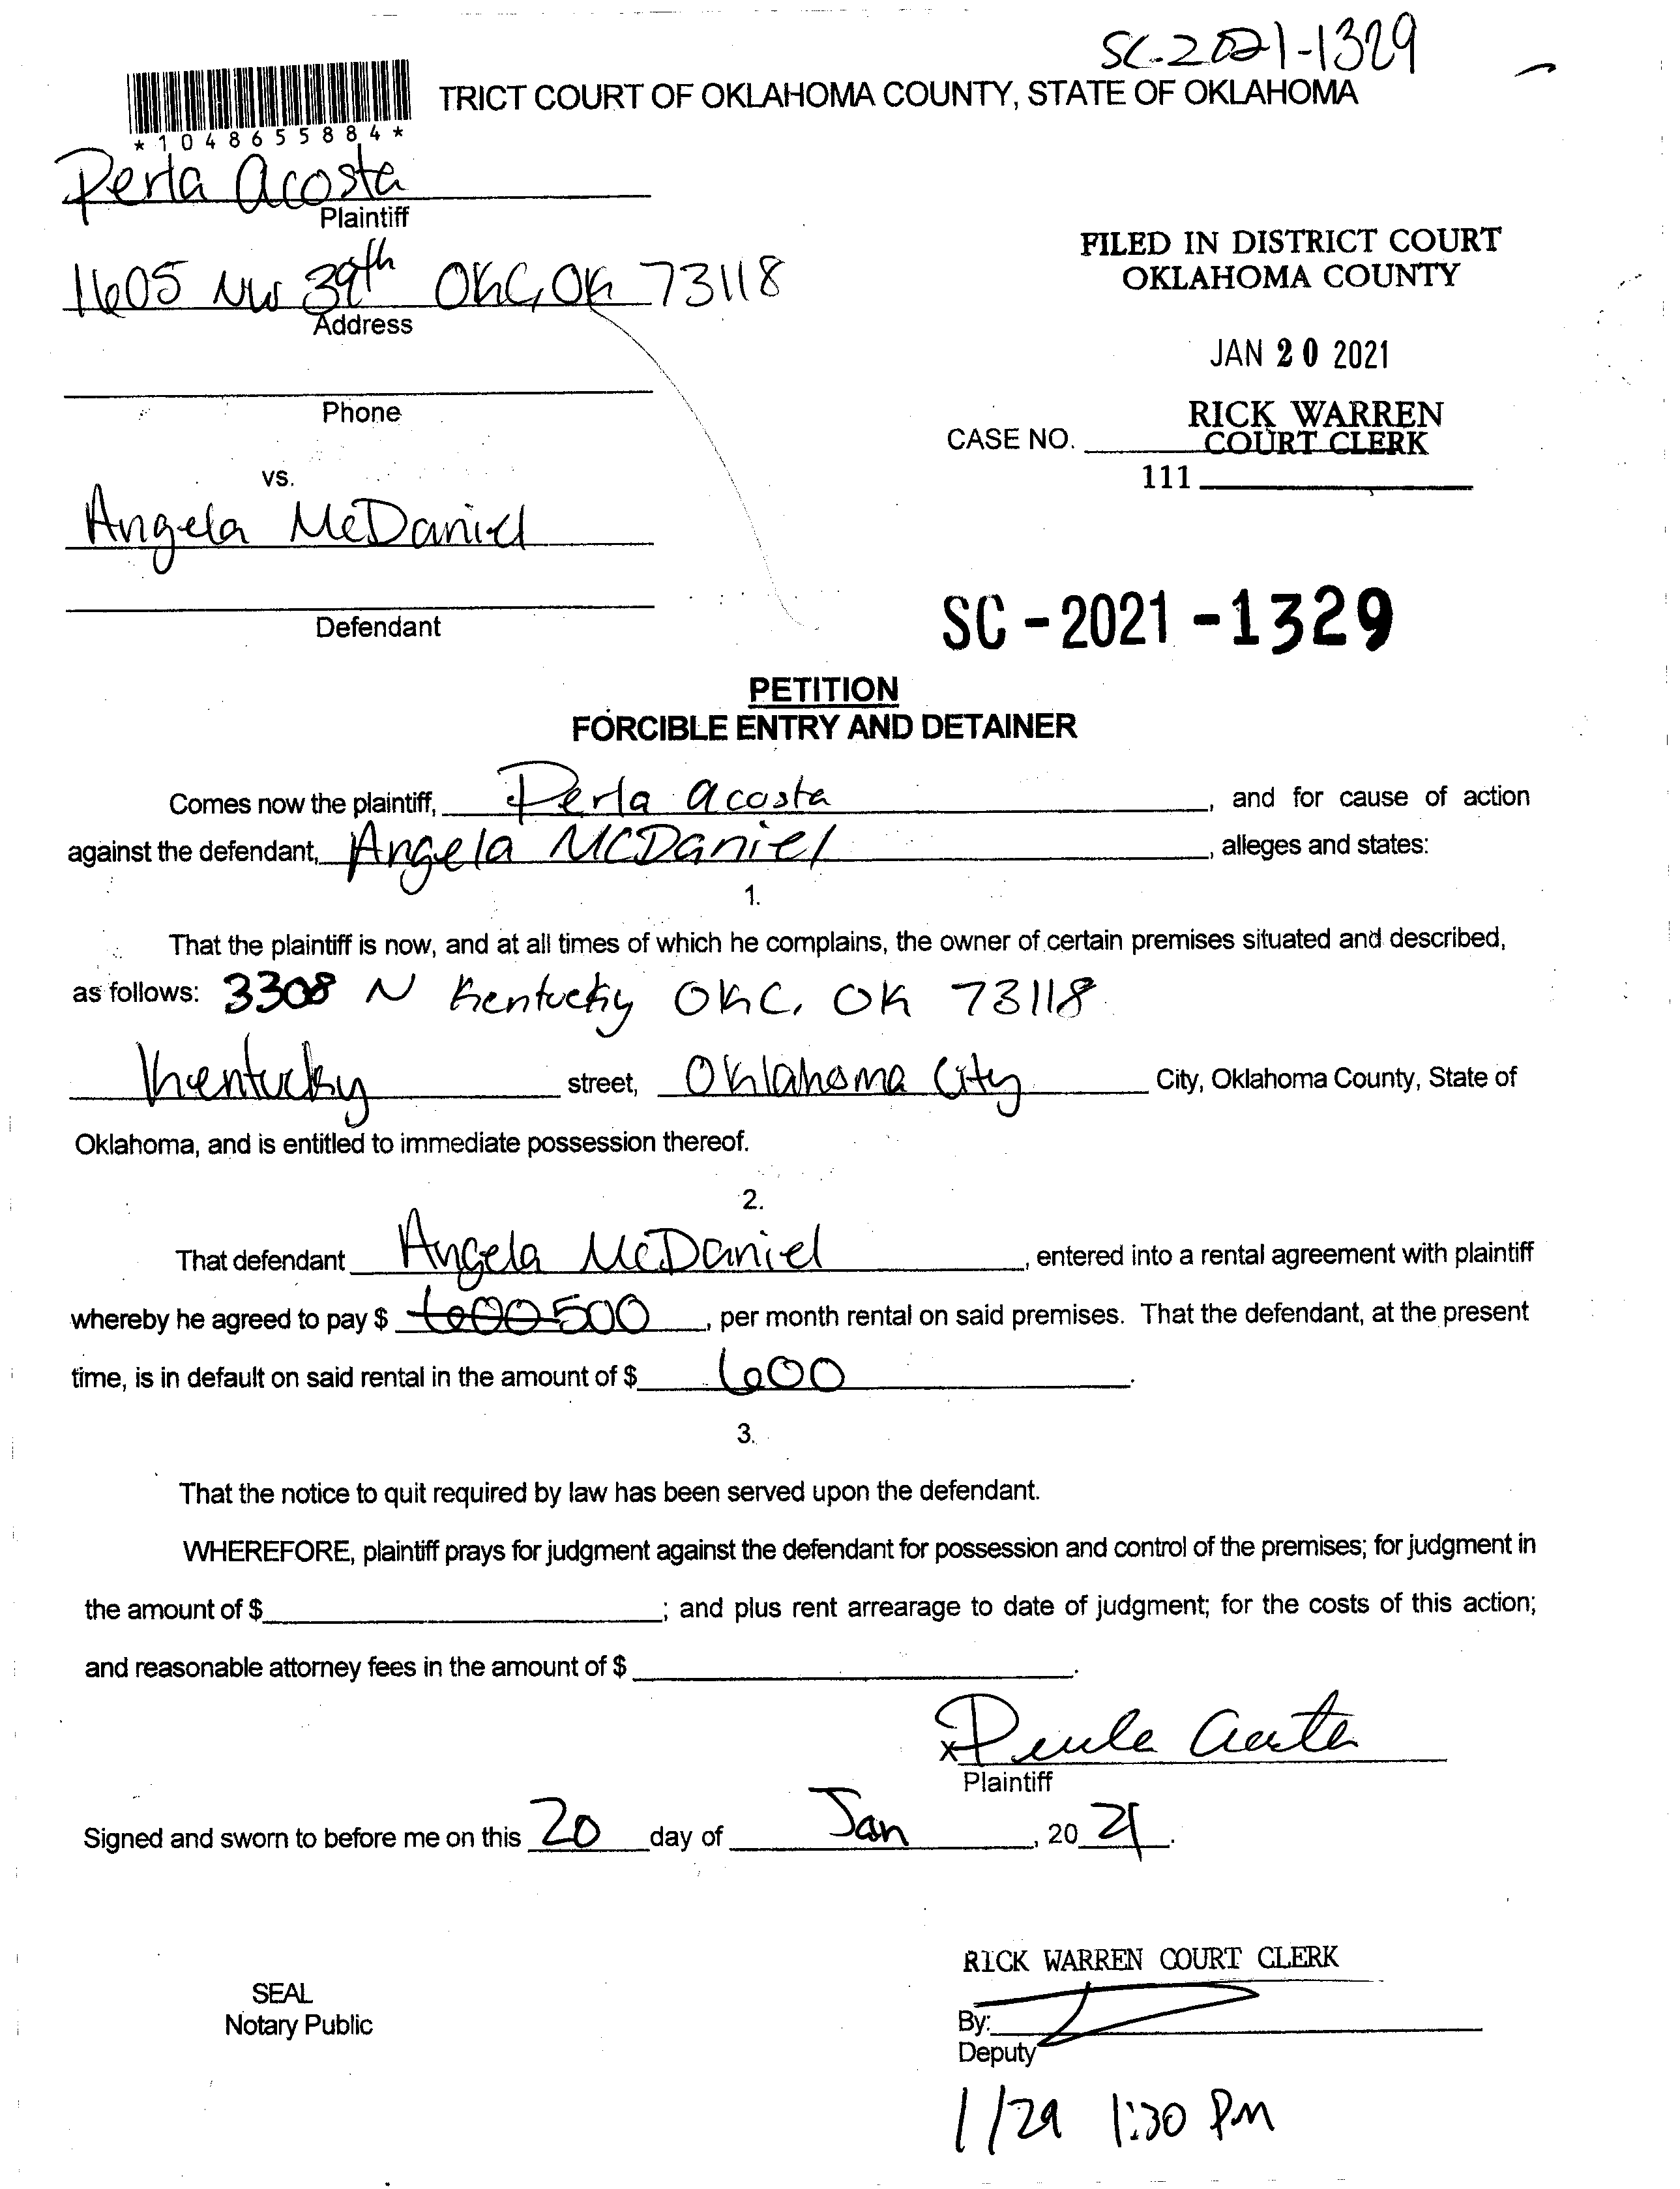 SC-2021-1329
TRICT COURT OF OKLAHOMA COUNTY, STATE OF OKLAHOMA
*1048655884*
Perla Acosta
Plaintiff
1605 NW 39th OKC, OK 73118
Address
Phone
FILED IN DISTRICT COURT
OKLAHOMA COUNTY
JAN 20 2021
RICK WARREN
COURT CLERK
CASE NO.
111
vs.
Angela McDaniel
Defendant
SC-2021-1329
PETITION
FORCIBLE ENTRY AND DETAINER
Comes now the plaintiff, Perla Acosta, and for cause of action
against the defendant, Angela McDaniel, alleges and states:
1.
That the plaintiff is now, and at all times of which he complains, the owner of certain premises situated and described,
as follows: 3308 N Kentucky OKC, OK 73118
Kentucky street, Oklahoma City City, Oklahoma County, State of
Oklahoma, and is entitled to immediate possession thereof.
2.
That defendant Angela McDaniel, entered into a rental agreement with plaintiff
whereby he agreed to pay $ 600 500, per month rental on said premises. That the defendant, at the present
time, is in default on said rental in the amount of $ 600.
3.
That the notice to quit required by law has been served upon the defendant.
WHEREFORE, plaintiff prays for judgment against the defendant for possession and control of the premises; for judgment in
the amount of $; and plus rent arrearage to date of judgment; for the costs of this action;
and reasonable attorney fees in the amount of $.
x Perla Acosta
Plaintiff
Signed and sworn to before me on this 20 day of Jan, 20 21.
RICK WARREN COURT CLERK
SEAL
Notary Public
By:
Deputy
1/29 1:30 PM